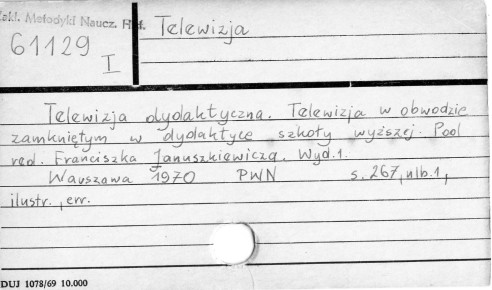 Zakł. Metodyki Naucz. Hist.
61129
I
Telewizja
Telewizja dydaktyczna. Telewizja w obwodzie
zamkniętym w dydaktyce szkoły wyższej. Pod
red. Franciszka Januszkiewicza. Wyd.1.
Warszawa 1970 PWN s. 267, nlb.1,
ilustr., err.
DUJ 1078/69 10.000